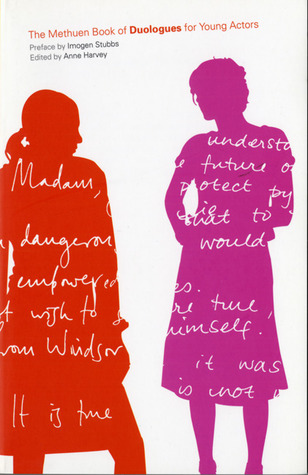 The Methuen Book of Duologues for Young Actors
Preface by Imogen Stubbs
Edited by Anne Harvey
understa
e future o
Madam,
protect py
that to
dangerou
would
empowered
es.
t wish to
re true,
himself.
rom Windsor
it was
is not
It is true